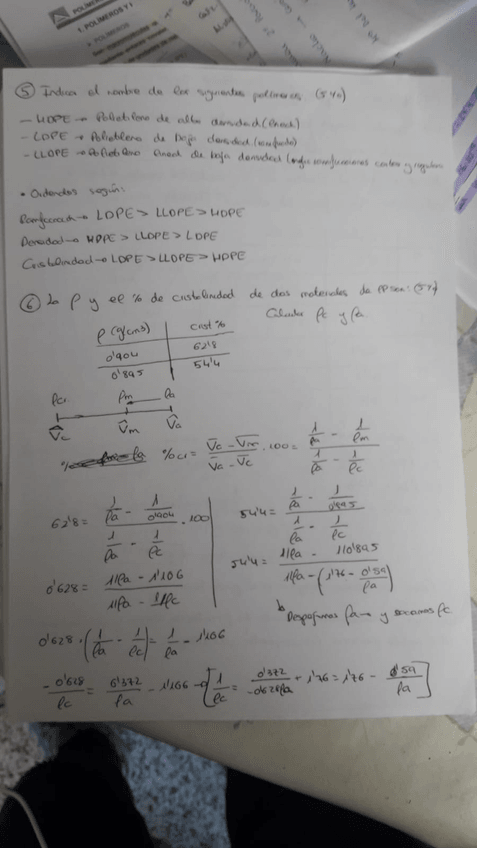 POLIMEROS
1. POLIMEROS Y
⑤ Indica el nombre de los siguientes polimeros (5 40)
- HDPE → Polietileno de alta densidad (lineal)
- LDPE → Polietileno de baja densidad (ramificado)
- LLDPE → Polietileno lineal de baja densidad (ramificaciones cortas y regulares
• Ordenalos según:
Ramificación → LDPE > LLDPE > HDPE
Densidad → HDPE > LLDPE > LDPE
Cristalinidad → LDPE > LLDPE > HDPE
⑥ La ρ y el % de cristalinidad de dos materiales de PP son:
Calcular ρc y ρa
ρ (g/cm3) | Crist %
0'904 | 62'8
0'895 | 54'4
ρc ρm ρa
V̂c V̂m V̂a
% cr = (V̄a - V̄m)/(V̄a - V̄c) · 100 = (1/ρa - 1/ρm)/(1/ρa - 1/ρc)
62'8 = (1/ρa - 1/0'904)/(1/ρa - 1/ρc) · 100
54'4 = (1/ρa - 1/0'895)/(1/ρa - 1/ρc)
0'628 = (1/ρa - 1'106)/(1/ρa - 1/ρc)
54'4 = (1/ρa - 1/0'895)/(1/ρa - (1'76 - 0'59/ρa))
Despejamos ρa → y sacamos ρc
0'628 · (1/ρa - 1/ρc) = 1/ρa - 1'106
-0'628/ρc = 0'372/ρa - 1'106 → [1/ρc = 0'372/-0'628ρa + 1'76 = 1'76 - 0'59/ρa]